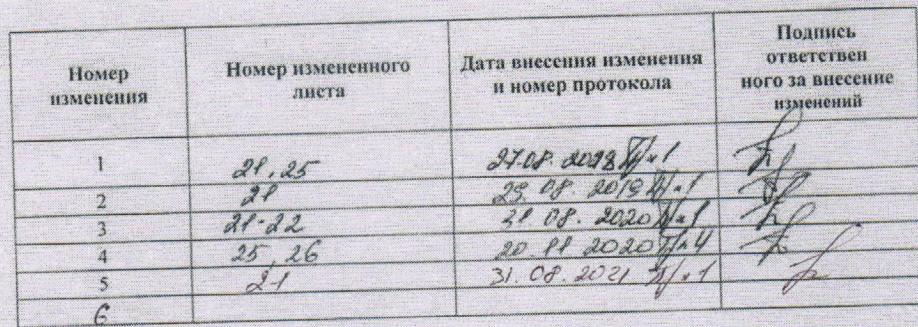 Номер изменения
Номер измененного листа
Дата внесения изменения и номер протокола
Подпись ответствен ного за внесение изменений
1 21, 25 27.08.2018 Пр №1
2 21 29.08.2019 №1
3 21-22 31.08.2020 №1
4 25, 26 20.11 2020 №4
5 21 31.08.2021 №1
6